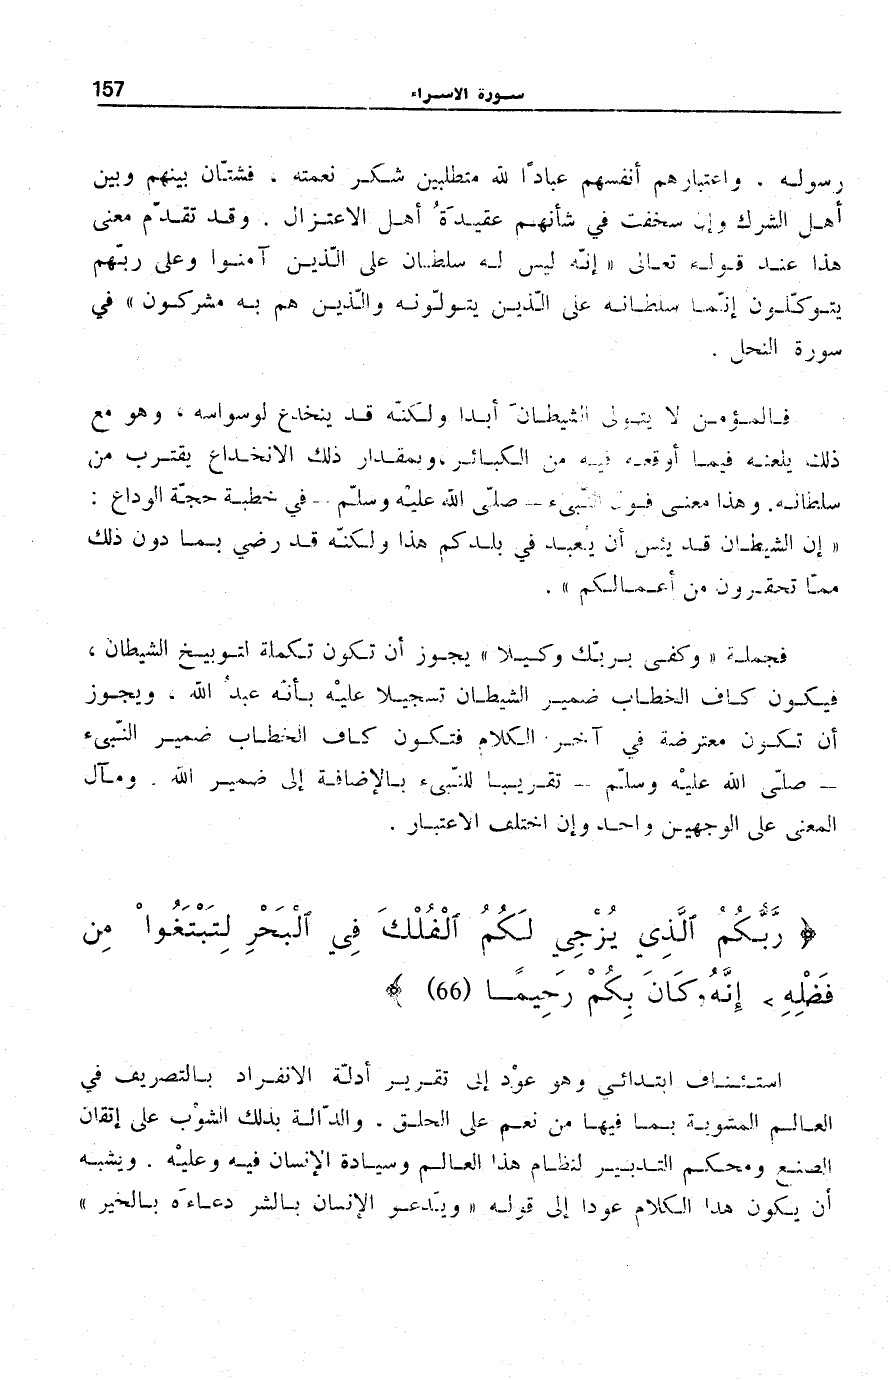 157
سورة الاسراء
رسوله . واعتبارهم أنفسهم عبادًا لله متطلبين شكر نعمته . فشتّان بينهم وبين
أهل الشرك وإن سخفت في شأنهم عقيدَةُ أهل الاعتزال . وقد تقدّم معنى
هذا عند قوله تعالى « إنّه ليس له سلطان على الّذين آمنوا وعلى ربّهم
يتوكّلون إنّما سلطانه على الّذين يتولّونه والّذين هم به مشركون » في
سورة النحل .
فالمؤمن لا يتولى الشيطانَ أبدا ولكنّه قد ينخدع لوسواسه ، وهو مع
ذلك يلعنه فيما أوقعه فيه من الكبائر ، وبمقدار ذلك الانخداع يقترب من
سلطانه . وهذا معنى قول النّبيء – صلّى الله عليْه وسلّم – في خطبة حجّة الوداع :
« إن الشيطان قد يئس أن يُعبد في بلدكم هذا ولكنّه قد رضي بما دون ذلك
ممّا تحقرون من أعمالكم » .
فجملة « وكفى بربّك وكيلا » يجوز أن تكون تكملة لتوبيخ الشيطان ،
فيكون كاف الخطاب ضمير الشيطان تسجيلا عليْه بأنّه عبدُ الله ، ويجوز
أن تكون معترضة في آخر الكلام فتكون كاف الخطاب ضمير النّبيء
– صلّى الله عليْه وسلّم – تقريبا للنّبيء بالإضافة إلى ضمير الله . ومآل
المعنى على الوجهين واحد وإن اختلف الاعتبار .
﴿ رَّبُّكُمُ ٱلَّذِي يُزْجِي لَكُمُ ٱلْفُلْكَ فِي ٱلْبَحْرِ لِتَبْتَغُواْ مِن
فَضْلِهِۦ إِنَّهُۥ كَانَ بِكُمْ رَحِيمًا (66) ﴾
استئناف ابتدائي وهو عوْد إلى تقرير أدلّة الانفراد بالتصريف في
العالم المشوبة بما فيها من نعم على الخلق . والدّالة بذلك الشوْب على إتقان
الصنع ومحكم التدبير لنظام هذا العالم وسيادة الإنسان فيه وعليْه . ويشبه
أن يكون هذا الكلام عودا إلى قوله « ويدعو الإنسان بالشر دعاءَه بالخير »